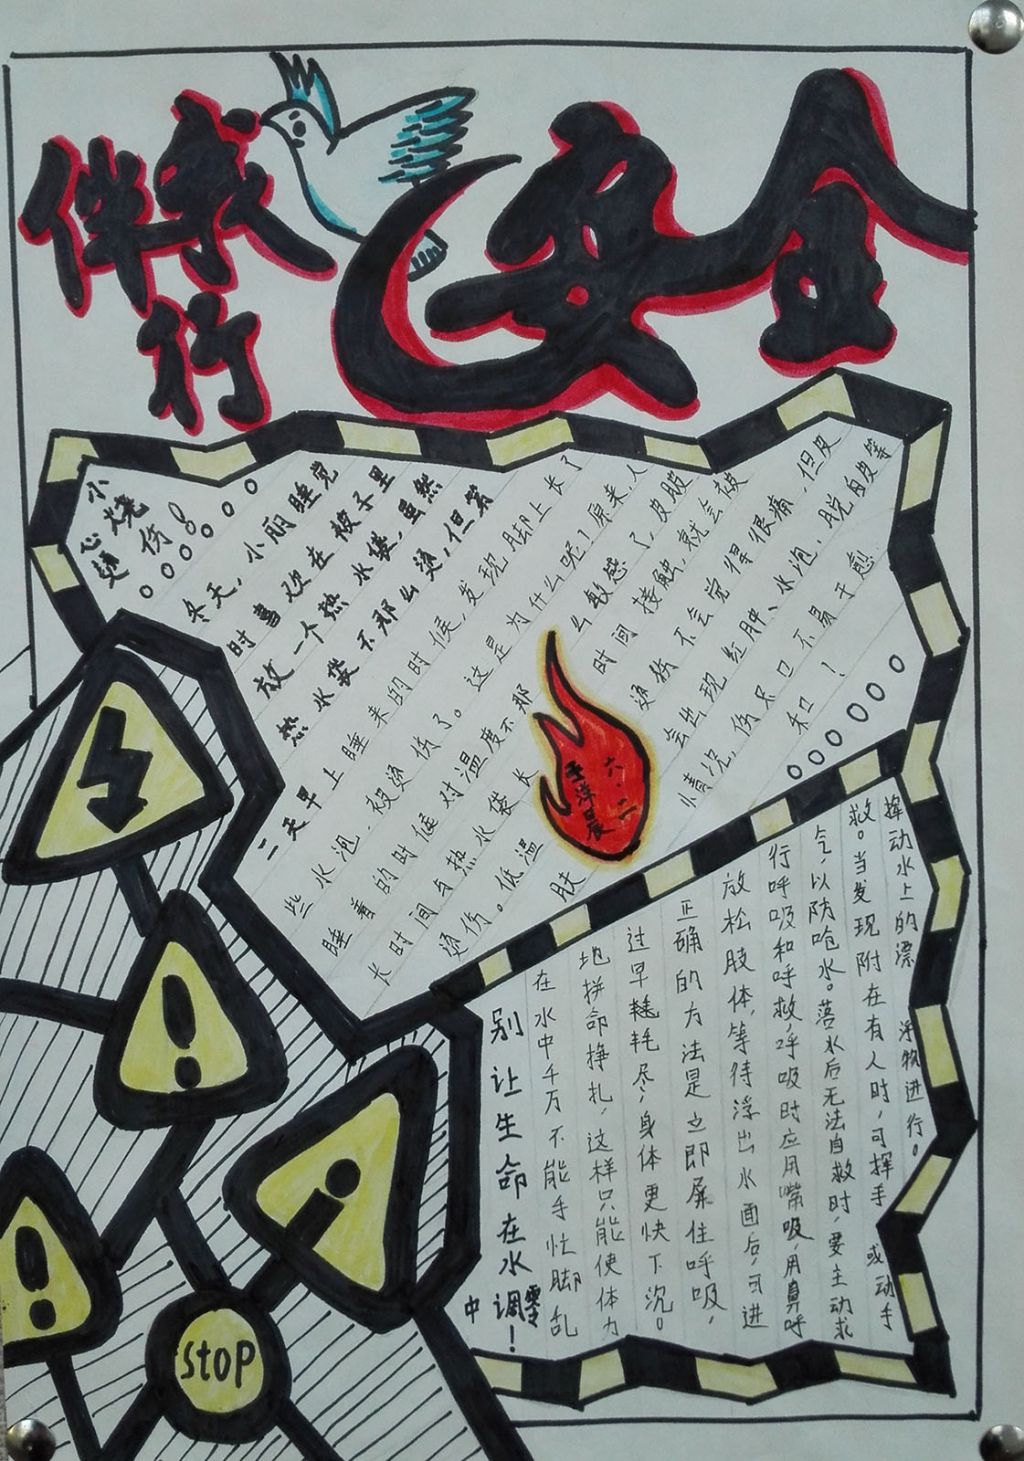 安全
伴我
行
小心
烫
烧
伤！
冬天，小丽睡觉
时喜欢在被子里
放一个热水袋，虽然
热水袋不那么烫，但第
二天早上睡来的时候，发现脚上长了
些水泡，被烫伤了。这是为什么呢？原来人
睡着的时候对温度不那么敏感了，皮肤
长时间与热水袋长时间接触，就会被
烫伤。低温烫伤不会觉得很痛，但皮
肤会出现红肿、水泡、脱白皮等
情况，伤口不易于愈
和！
王洋晨
六.二
别让生命在水中
凋零！
在水中千万不能手忙脚乱
地拼命挣扎，这样只能使体力
过早耗尽，身体更快下沉。
正确的方法是立即屏住呼吸，
放松肢体，等待浮出水面后，可进
行呼吸和呼救，呼吸时应用嘴吸，用鼻呼
气，以防呛水。落水后无法自救时，要主动求
救。当发现附在有人时，可挥手 或动手
挥动水上的漂 浮物进行。
stop